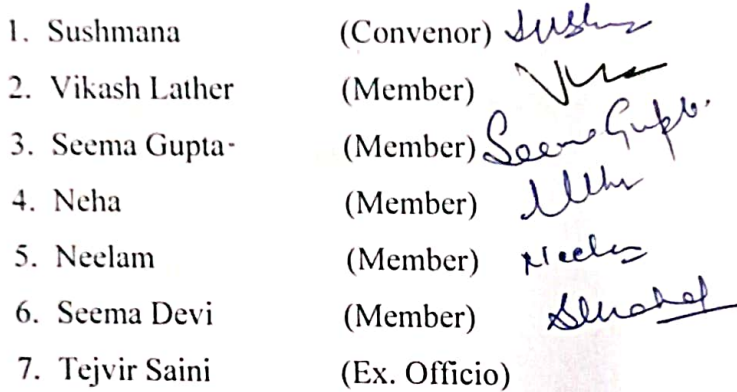 1. Sushmana (Convenor) Sushm
2. Vikash Lather (Member)
3. Seema Gupta- (Member) Seema Gupta.
4. Neha (Member)
5. Neelam (Member) Neelam
6. Seema Devi (Member)
7. Tejvir Saini (Ex. Officio)